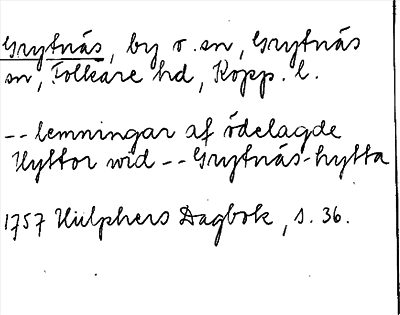 Grytnäs, by o. sn, Grytnäs
sn, Folkare hd, Kopp. l.
-- lemningar af ödelagde
Hyttor wid -- Grytnäs-hytta
1757 Hülphers Dagbok, s. 36.